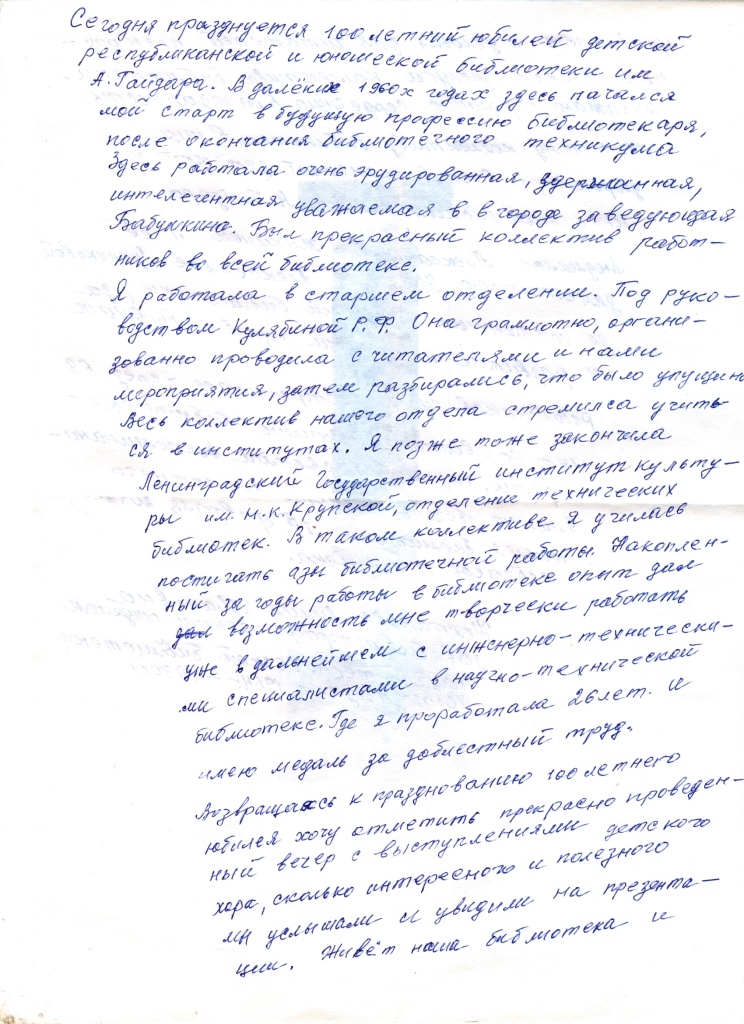 Сегодня празднуется 100 летний юбилей детской
республиканской и юношеской библиотеки им
А. Гайдара. В далёкие 1960х годах здесь начался
мой старт в будущую профессию библиотекаря,
после окончания библиотечного техникума
Здесь работала очень эрудированная, здержанная,
интелегентная уважаемая в в городе заведующая
Бабушкина. Был прекрасный коллектив работ-
ников во всей библиотеке.
Я работала в старшем отделении. Под руко-
водством Кулябиной Р.Ф. Она граммотно, органи-
зованно проводила с читателями и нами
мероприятия, затем разбирались, что было упущено
Весь коллектив нашего отдела стремился учить-
ся в институтах. Я позже тоже закончила
Ленинградский Государственный институт культу-
ры им. Н.К. Крупской, отделение технических
библиотек. В таком коллективе я училась
постигать азы библиотечной работы. Накоплен-
ный за годы работы в библиотеке опыт дал
дал возможность мне творчески работать
уже в дальнейшем с инжнерно-технически-
ми специалистами в научно-технической
библиотеке. Где я проработала 26 лет. и
имею медаль за доблестный труд.
Возвращаясь к празднованию 100 летнего
юбилея хочу отметить прекрасно проведен-
ный вечер с выступлениями детского
хора, сколько интересного и полезного
мы услышали и увидили на презента-
ции. Живёт наша библиотека и